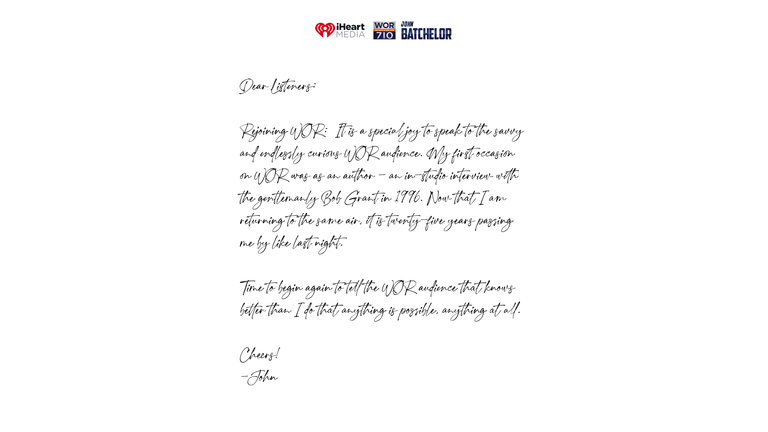 iHeart MEDIA WOR 710 JOHN BATCHELOR
Dear Listeners:
Rejoining WOR: It is a special joy to speak to the savvy
and endlessly curious WOR audience. My first occasion
on WOR was as an author – an in-studio interview with
the gentlemanly Bob Grant in 1996. Now that I am
returning to the same air, it is twenty-five years passing
me by like last night.
Time to begin again to tell the WOR audience that knows
better than I do that anything is possible, anything at all.
Cheers!
–John